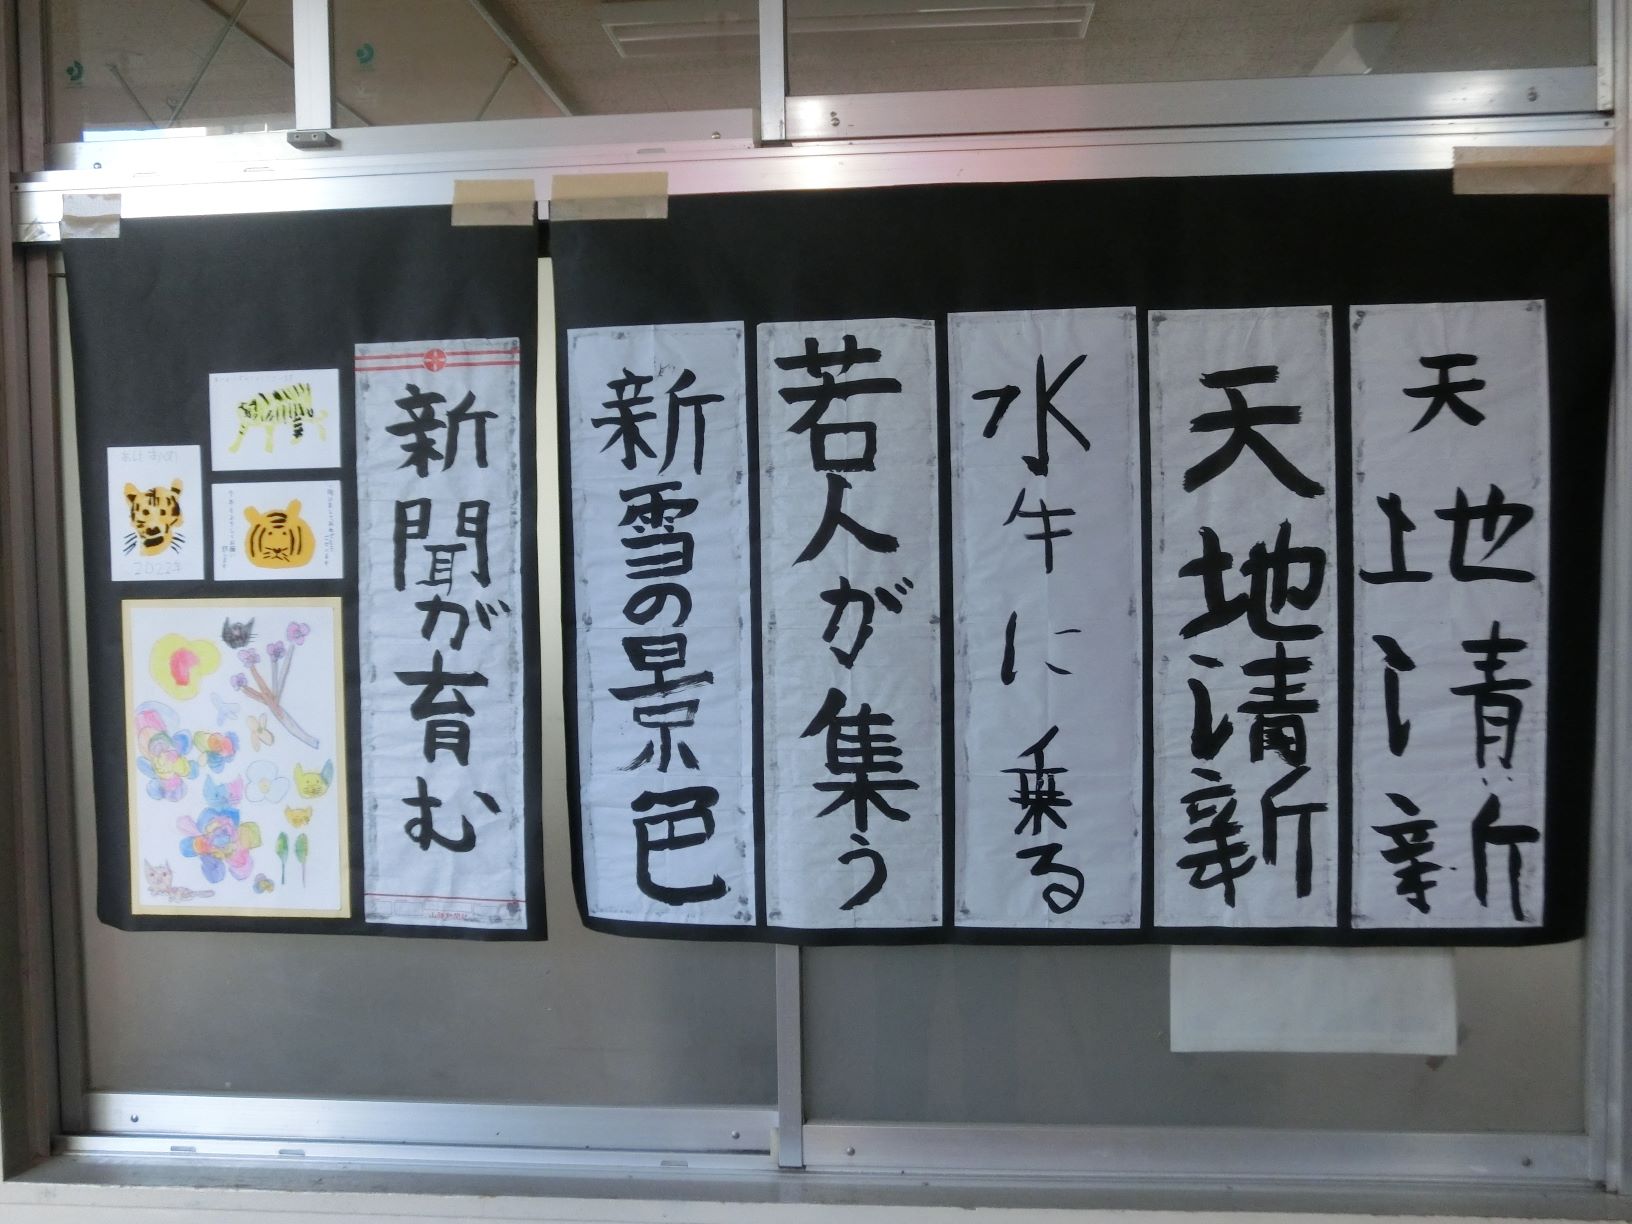 天地清新
天地清新
水牛に乗る
若人が集う
新雪の景色
新聞が育む
2022